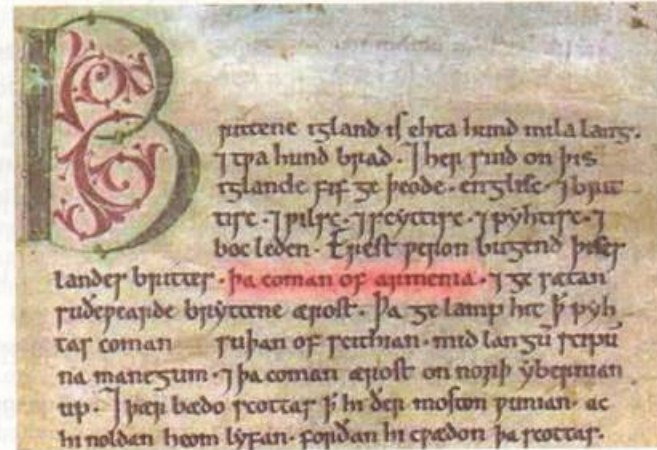 Brittene igland is ehta hund mila lang.
⁊ tpa hund brad. ⁊ her sind on þis
iglande fif ge þeode. englisc. ⁊ brit
tisc. ⁊ pilsc. ⁊ scyttisc. ⁊ pyhtisc. ⁊
boc leden. Erest peron bugend þises
landes brittes. þa coman of armenia. ⁊ ge sætan
suðepearde bryttene ærost. Þa ge lamp hit þ̄ pyh
tas coman suþan of scithian. mid langū scipū
na manegum. ⁊ þa coman ærost on norþ ybernian
up. ⁊ þær bædo scottas þ̄ hi ðer moston punian. ac
hi noldan heom lyfan. forðan hi cpædon þa scottas.